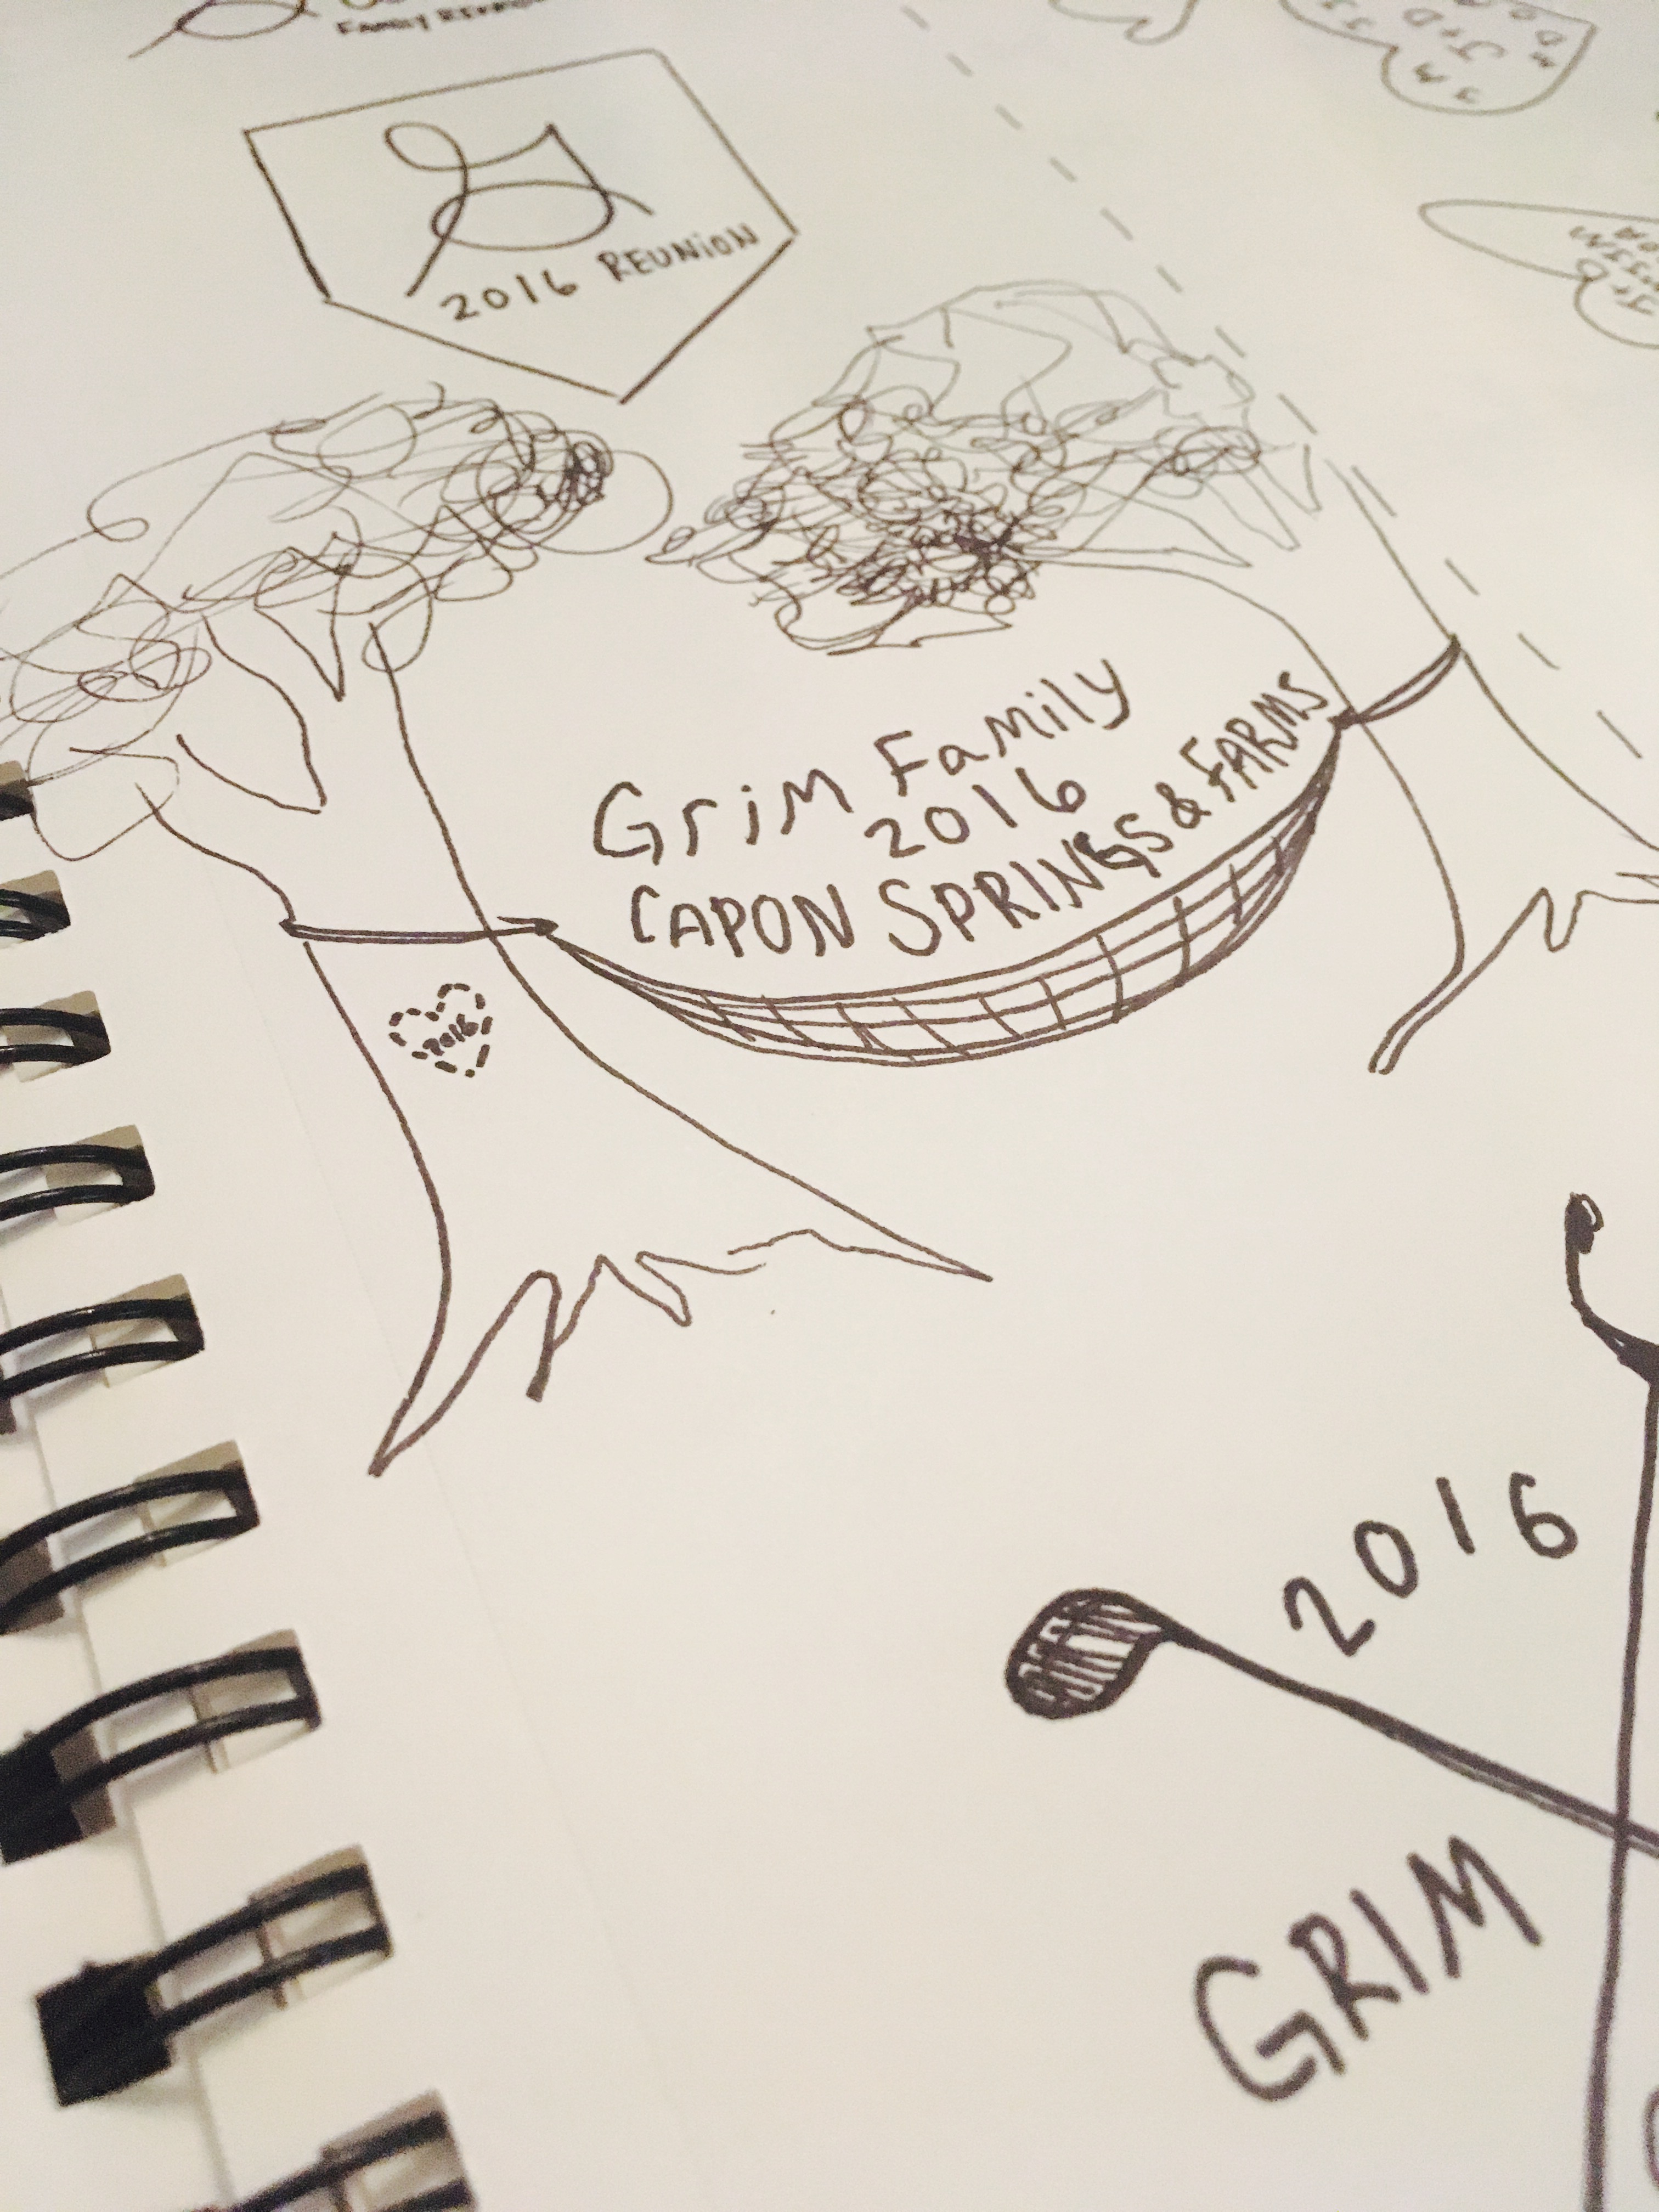 Family Reunion
2016 REUNION
Grim Family
2016
CAPON SPRINGS & FARMS
2016
2016
GRIM